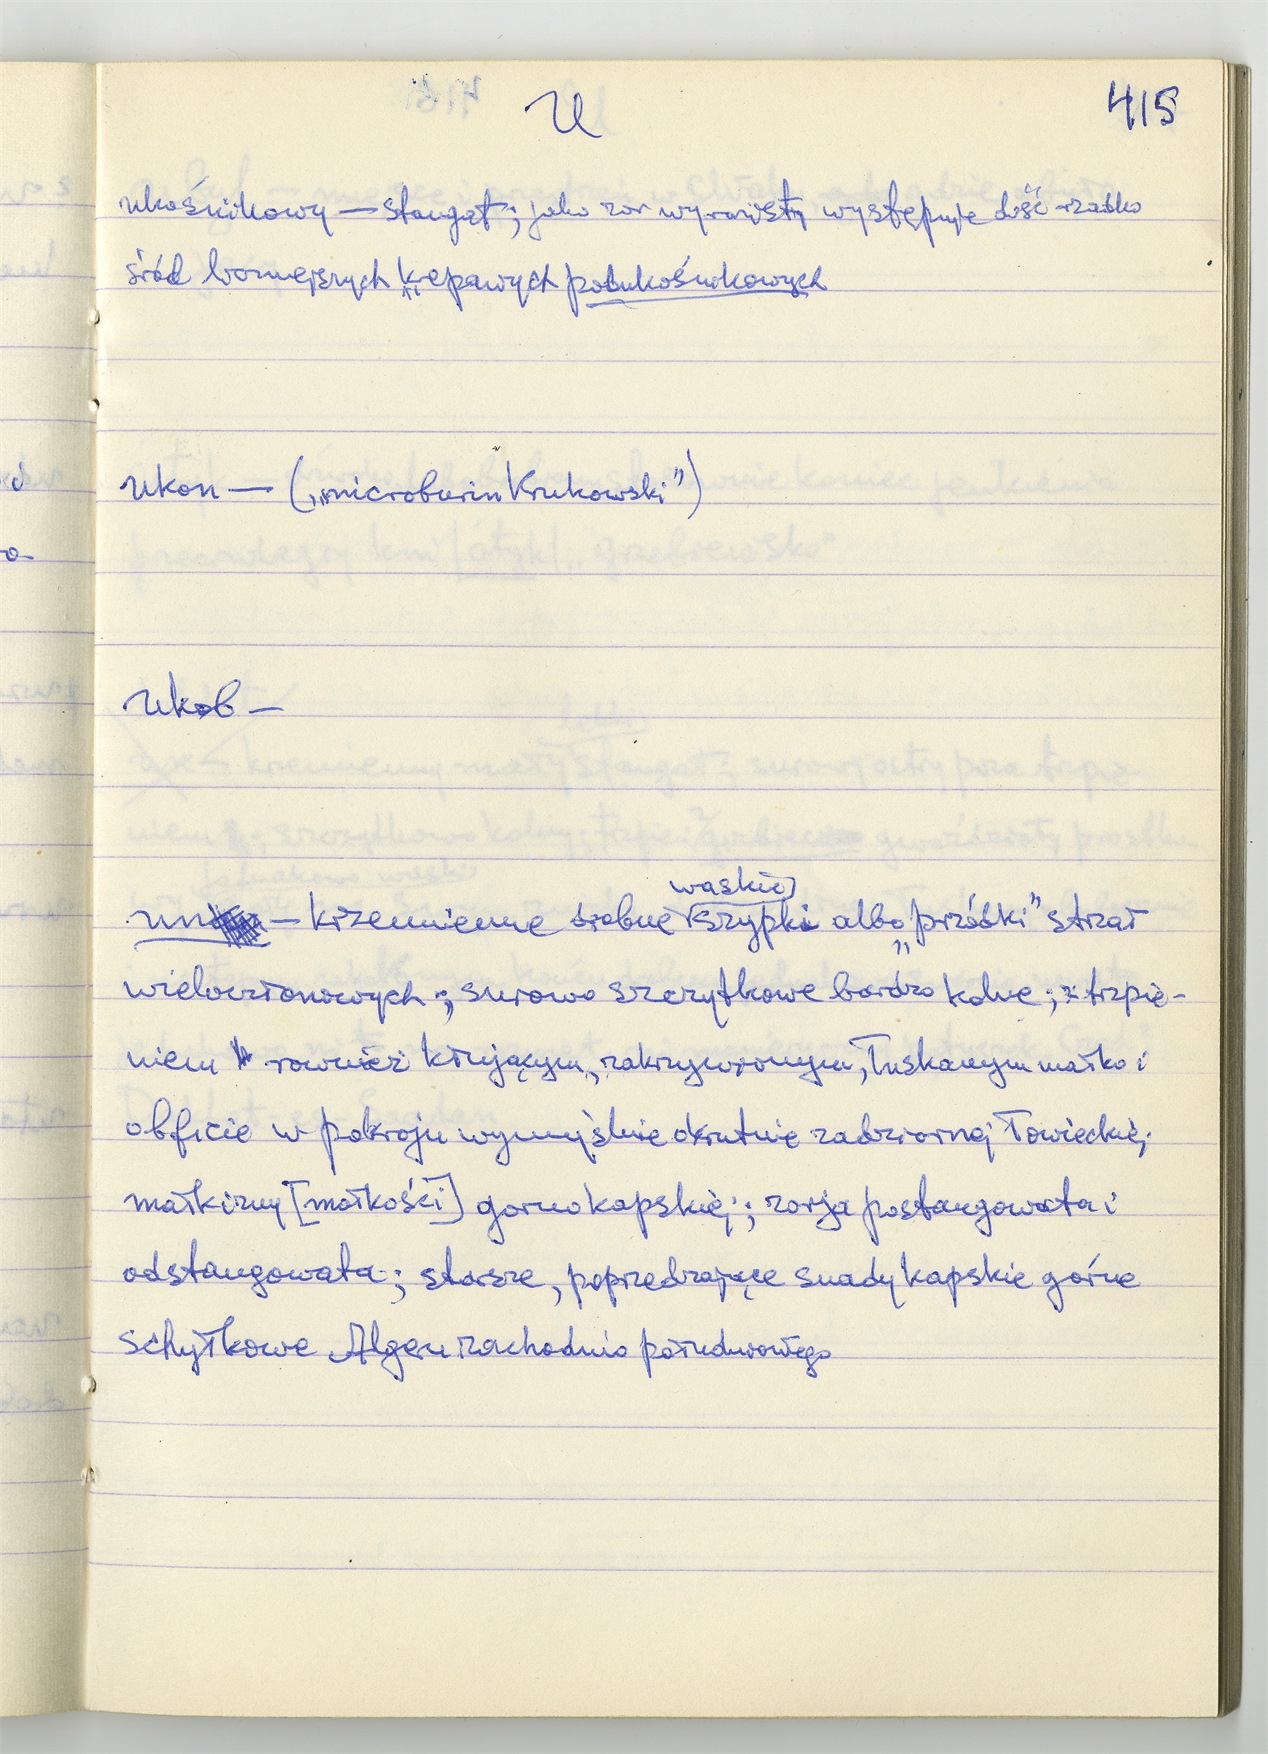 U 415
ukośnikowy — stangat; jako zor wyrazisty występuje dość rzadko
śród liczniejszych krępawych półukośnikowych
ukon — („microburin Krukowski")
ukob —
un — krzemienne drobne wąskie szypki albo „prząśki" strzał
wieloczłonowych; surowo szczytkowe bardzo kolne; z trzpie-
niem również kłującym, zakrzywionym, łuskanym małko i
obficie w pokroju wymyślnie okrutnie zadziornej łowieckiej
małkizny [małkości] gornokapskiej; zorja postangowata i
odstangowata; starsze, poprzedzające snady kapskie górne
schyłkowe Algeru zachodnio południowego